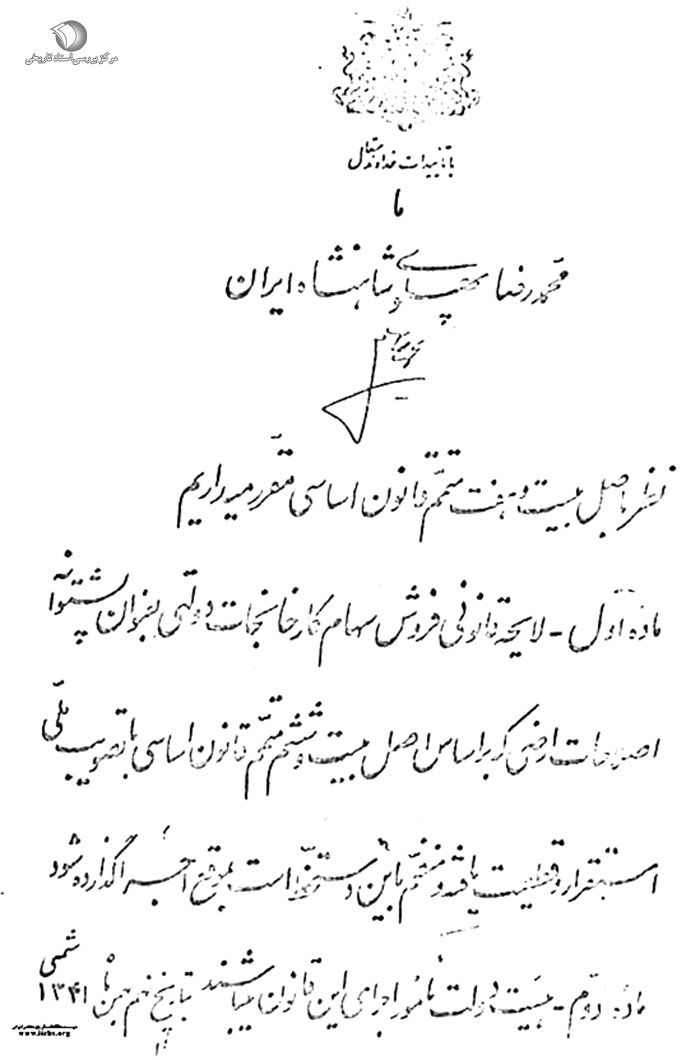 مرکز بررسی اسناد تاریخی
با تأییدات خداوند متعال
ما
محمدرضا پهلوی شاهنشاه ایران
نظر باصل بیست و هفت متمّم قانون اساسی مقرر میداریم
مادّه اوّل - لایحه قانونی فروش سهام کارخانجات دولتی بعنوان پشتوانه
اصلاحات ارضی که براساس اصل بیست و ششم متمّم قانون اساسی با تصویب ملّی
استقرار و قطعیت یافته و منضمّ باین دستخطّ است بموقع اجرا گذارده شود
مادّه دوّم - هیئت دولت مأمور اجرای این قانون میباشند بتاریخ ششم بهمن ماه ۱۳۴۱ شمسی
www.iichs.org